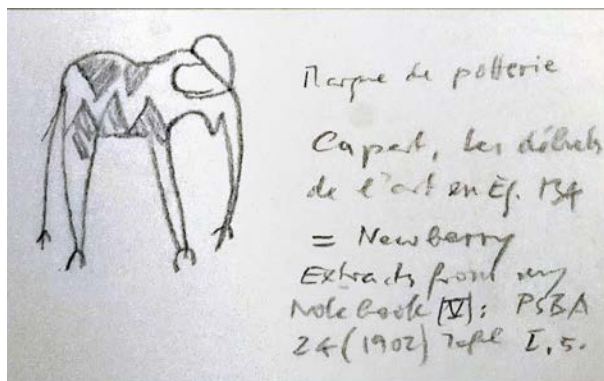 Marque de potterie
Capart, Les débuts
de l'art en Ég. 134
= Newberry
Extracts from my
Notebook [V]: PSBA
24 (1902) Tafel I, 5.